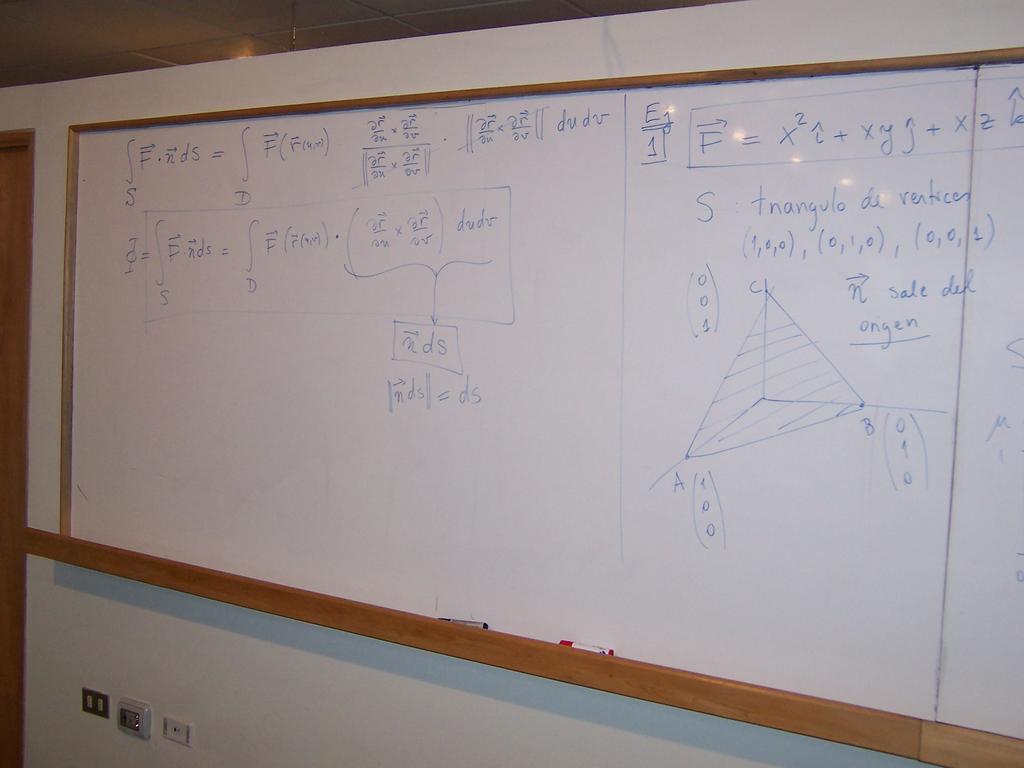 ∫_S F⃗ · n⃗ ds = ∫_D F⃗(r⃗(u,v)) (∂r⃗/∂u × ∂r⃗/∂v) / ‖∂r⃗/∂u × ∂r⃗/∂v‖ · ‖∂r⃗/∂u × ∂r⃗/∂v‖ du dv
Φ = ∫_S F⃗ · n⃗ ds = ∫_D F⃗(r⃗(u,v)) · (∂r⃗/∂u × ∂r⃗/∂v) du dv
n⃗ ds
|n⃗ ds| = ds
Ej 1 F⃗ = x² î + xy ĵ + xz k̂
S : triangulo de vertices
(1,0,0), (0,1,0), (0,0,1)
n⃗ sale del
origen
C (0 0 1)
B (0 1 0)
A (1 0 0)